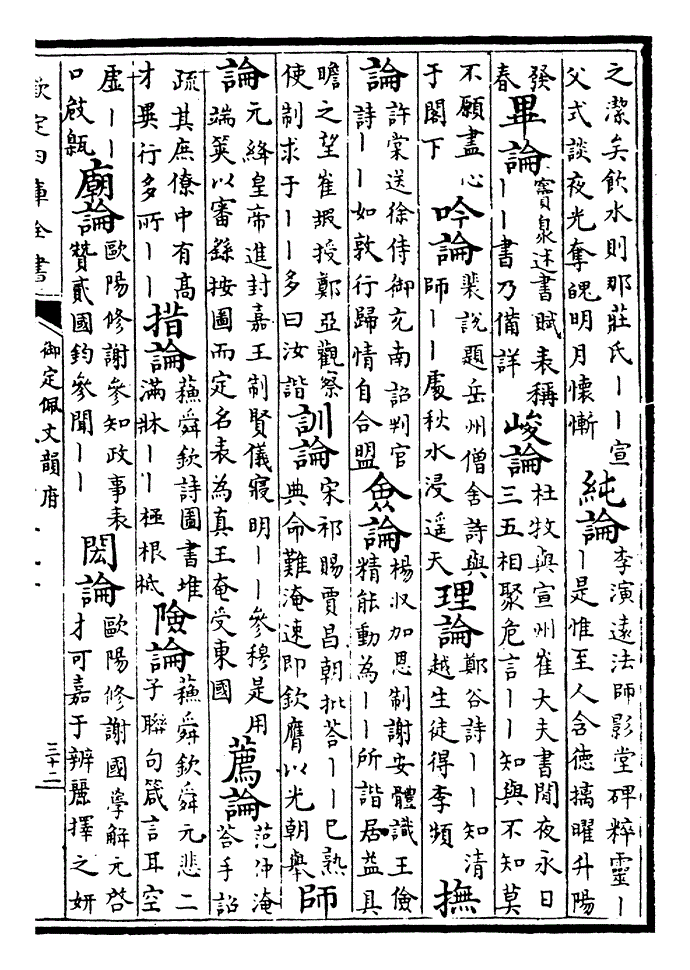 之潔矣飲水則那莊氏丨丨宣
父式談夜光奪魄明月懷慚
純論
李演遠法師影堂碑粹靈丨
丨是惟至人含德摛曜升陽
發
春
畢論
竇泉述書賦表稱
丨丨書乃備詳
峻論
杜牧與宣州崔大夫書閒夜永日
三五相聚危言丨丨知與不知莫
不願盡心
于閣下
吟論
裴說題岳州僧舍詩與
師丨丨處秋水浸遥天
理論
鄭谷詩丨丨知清
越生徒得李頻
撫
論
許棠送徐侍御充南詔判官
詩丨丨如敦行歸情自合盟
僉論
楊收加恩制謝安體識王儉
精能動為丨丨所諧居益具
瞻之望崔嘏授鄭亞觀察
使制求于丨丨多曰汝諧
訓論
宋祁賜賈昌朝批荅丨丨已熟
典命難淹速即欽膺以光朝舉
師
論
元絳皇帝進封嘉王制賢儀寢明丨丨參穆是用
端筴以審繇按圖而定名表為真王奄受東國
薦論
范仲淹
荅手詔
疏其庶僚中有高
才異行多所丨丨
措論
蘇舜欽詩圖書堆
滿牀丨丨極根柢
險論
蘇舜欽舜元悲二
子聯句箴言耳空
虛丨丨
口啟甈
廟論
歐陽修謝參知政事表
贊貳國鈞參聞丨丨
閎論
歐陽修謝國學解元啓
才可嘉于辨麗擇之妍
欽定四庫全書
御定佩文韻府
三十二